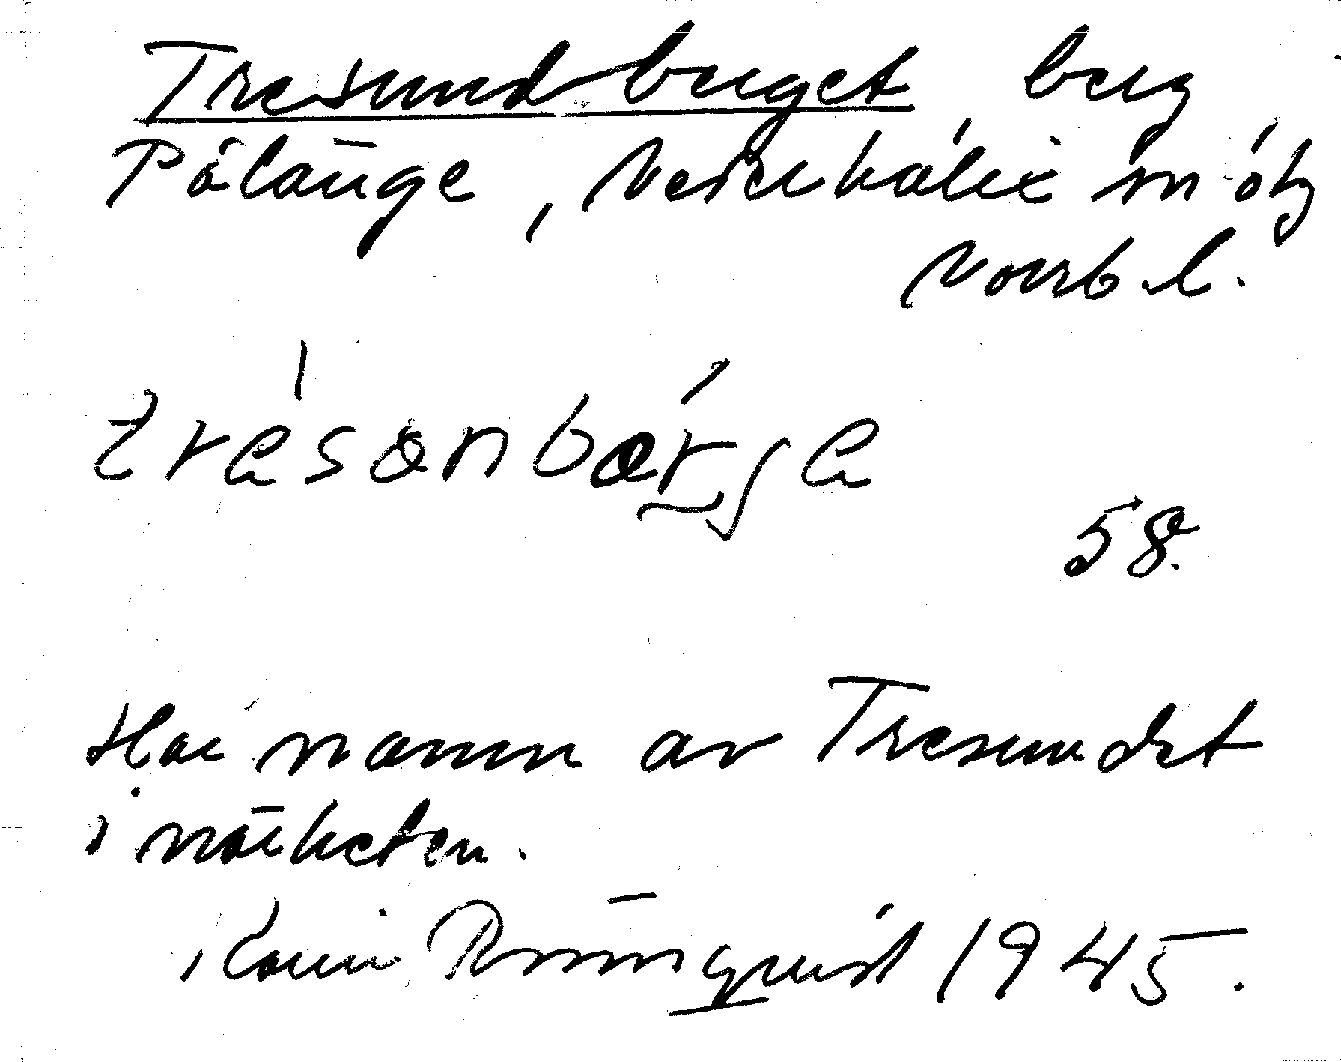 Tresundberget berg
Pålänge, Nederkalix sn öfg
Norrb. l.
trésɑnbǽrje
58.
Har namn av Tresundet
i närheten.
Karin Rönnquist 1945.